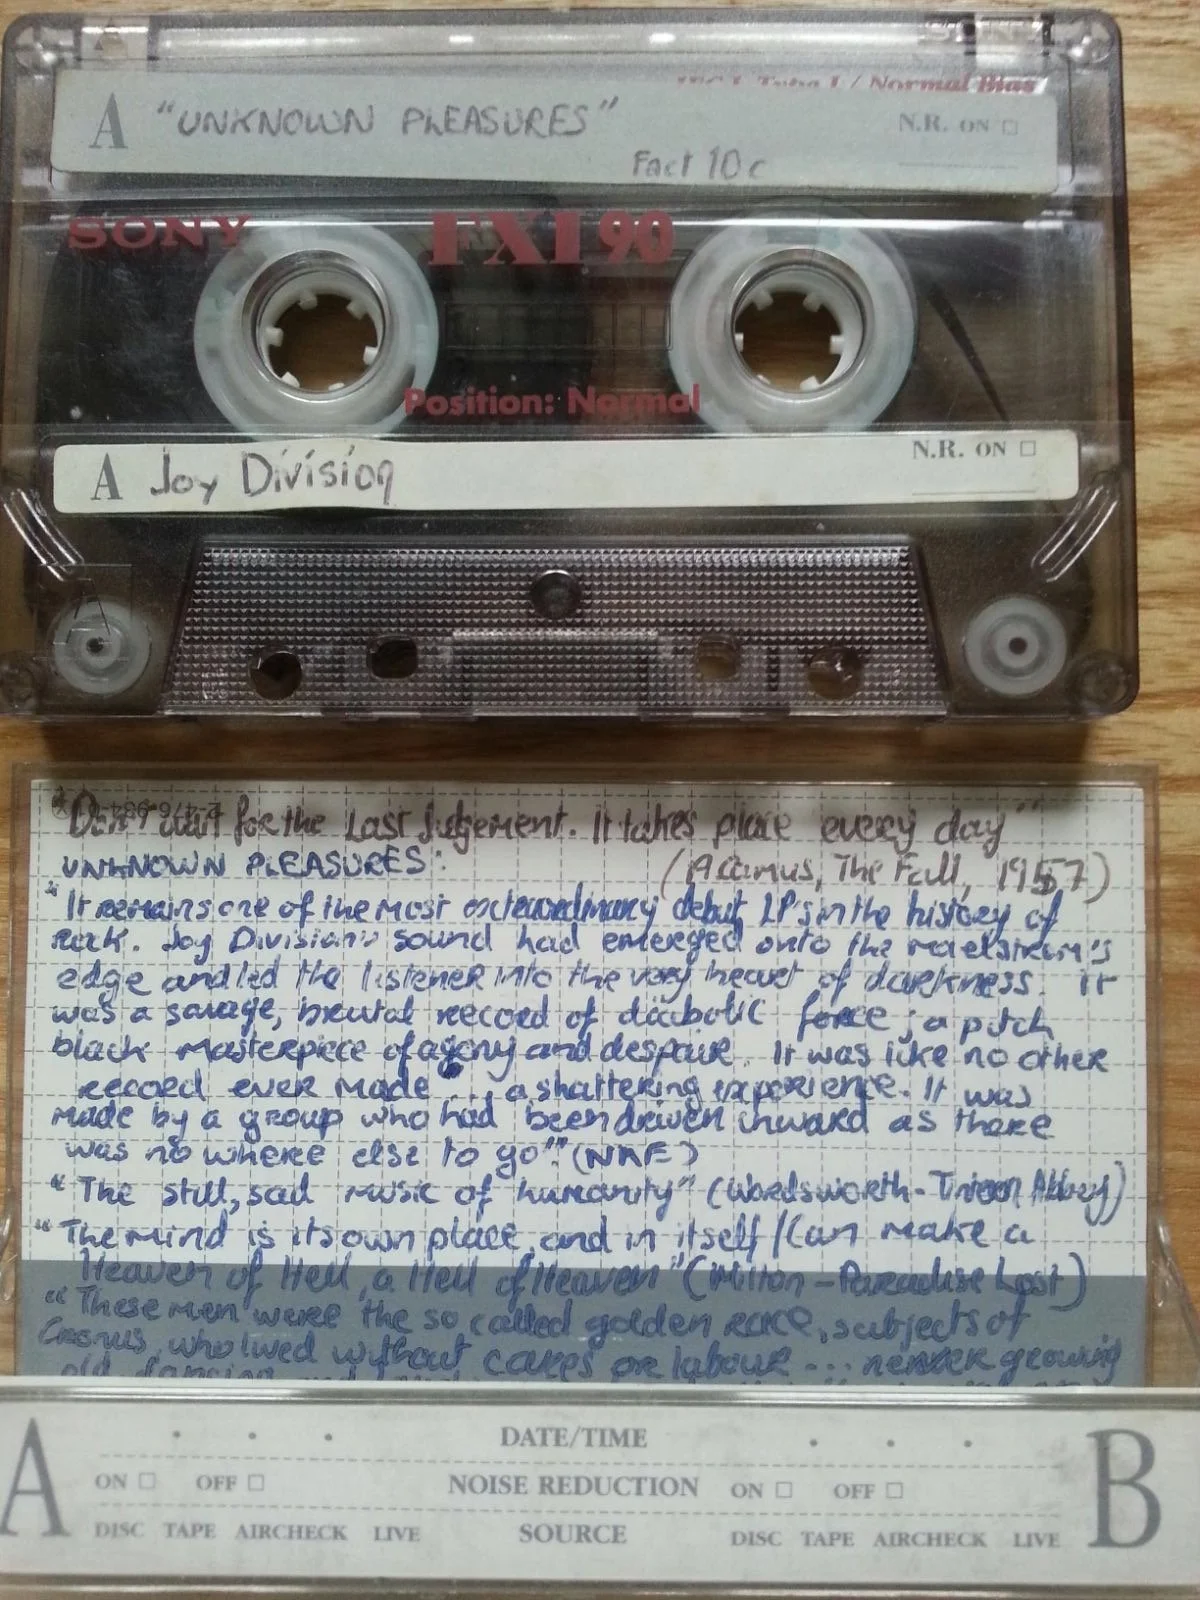 A "UNKNOWN PLEASURES"
Type I / Normal Bias
N.R. ON
Fact 10c
SONY FX I 90
Position: Normal
A Joy Division
N.R. ON
"Don't wait for the Last Judgement. It takes place every day"
UNKNOWN PLEASURES: (A Camus, The Fall, 1957)
"It remains one of the most extraordinary debut LP's in the history of
rock. Joy Division's sound had emerged onto the maelstrom's
edge and led the listener into the very heart of darkness. It
was a savage, brutal record of diabolic force; a pitch
black masterpiece of agony and despair. It was like no other
record ever made ... a shattering experience. It was
made by a group who had been driven inward as there
was no where else to go" (NME)
"The still, sad music of humanity" (Wordsworth - Abbey)
"The mind is its own place, and in itself / Can make a
Heaven of Hell, a Hell of Heaven" (Milton - Paradise Lost)
"These men were the so called golden race, subjects of
Cronus, who lived without cares or labour ... never growing
old,
A B
DATE/TIME
ON OFF NOISE REDUCTION ON OFF
DISC TAPE AIRCHECK LIVE SOURCE DISC TAPE AIRCHECK LIVE